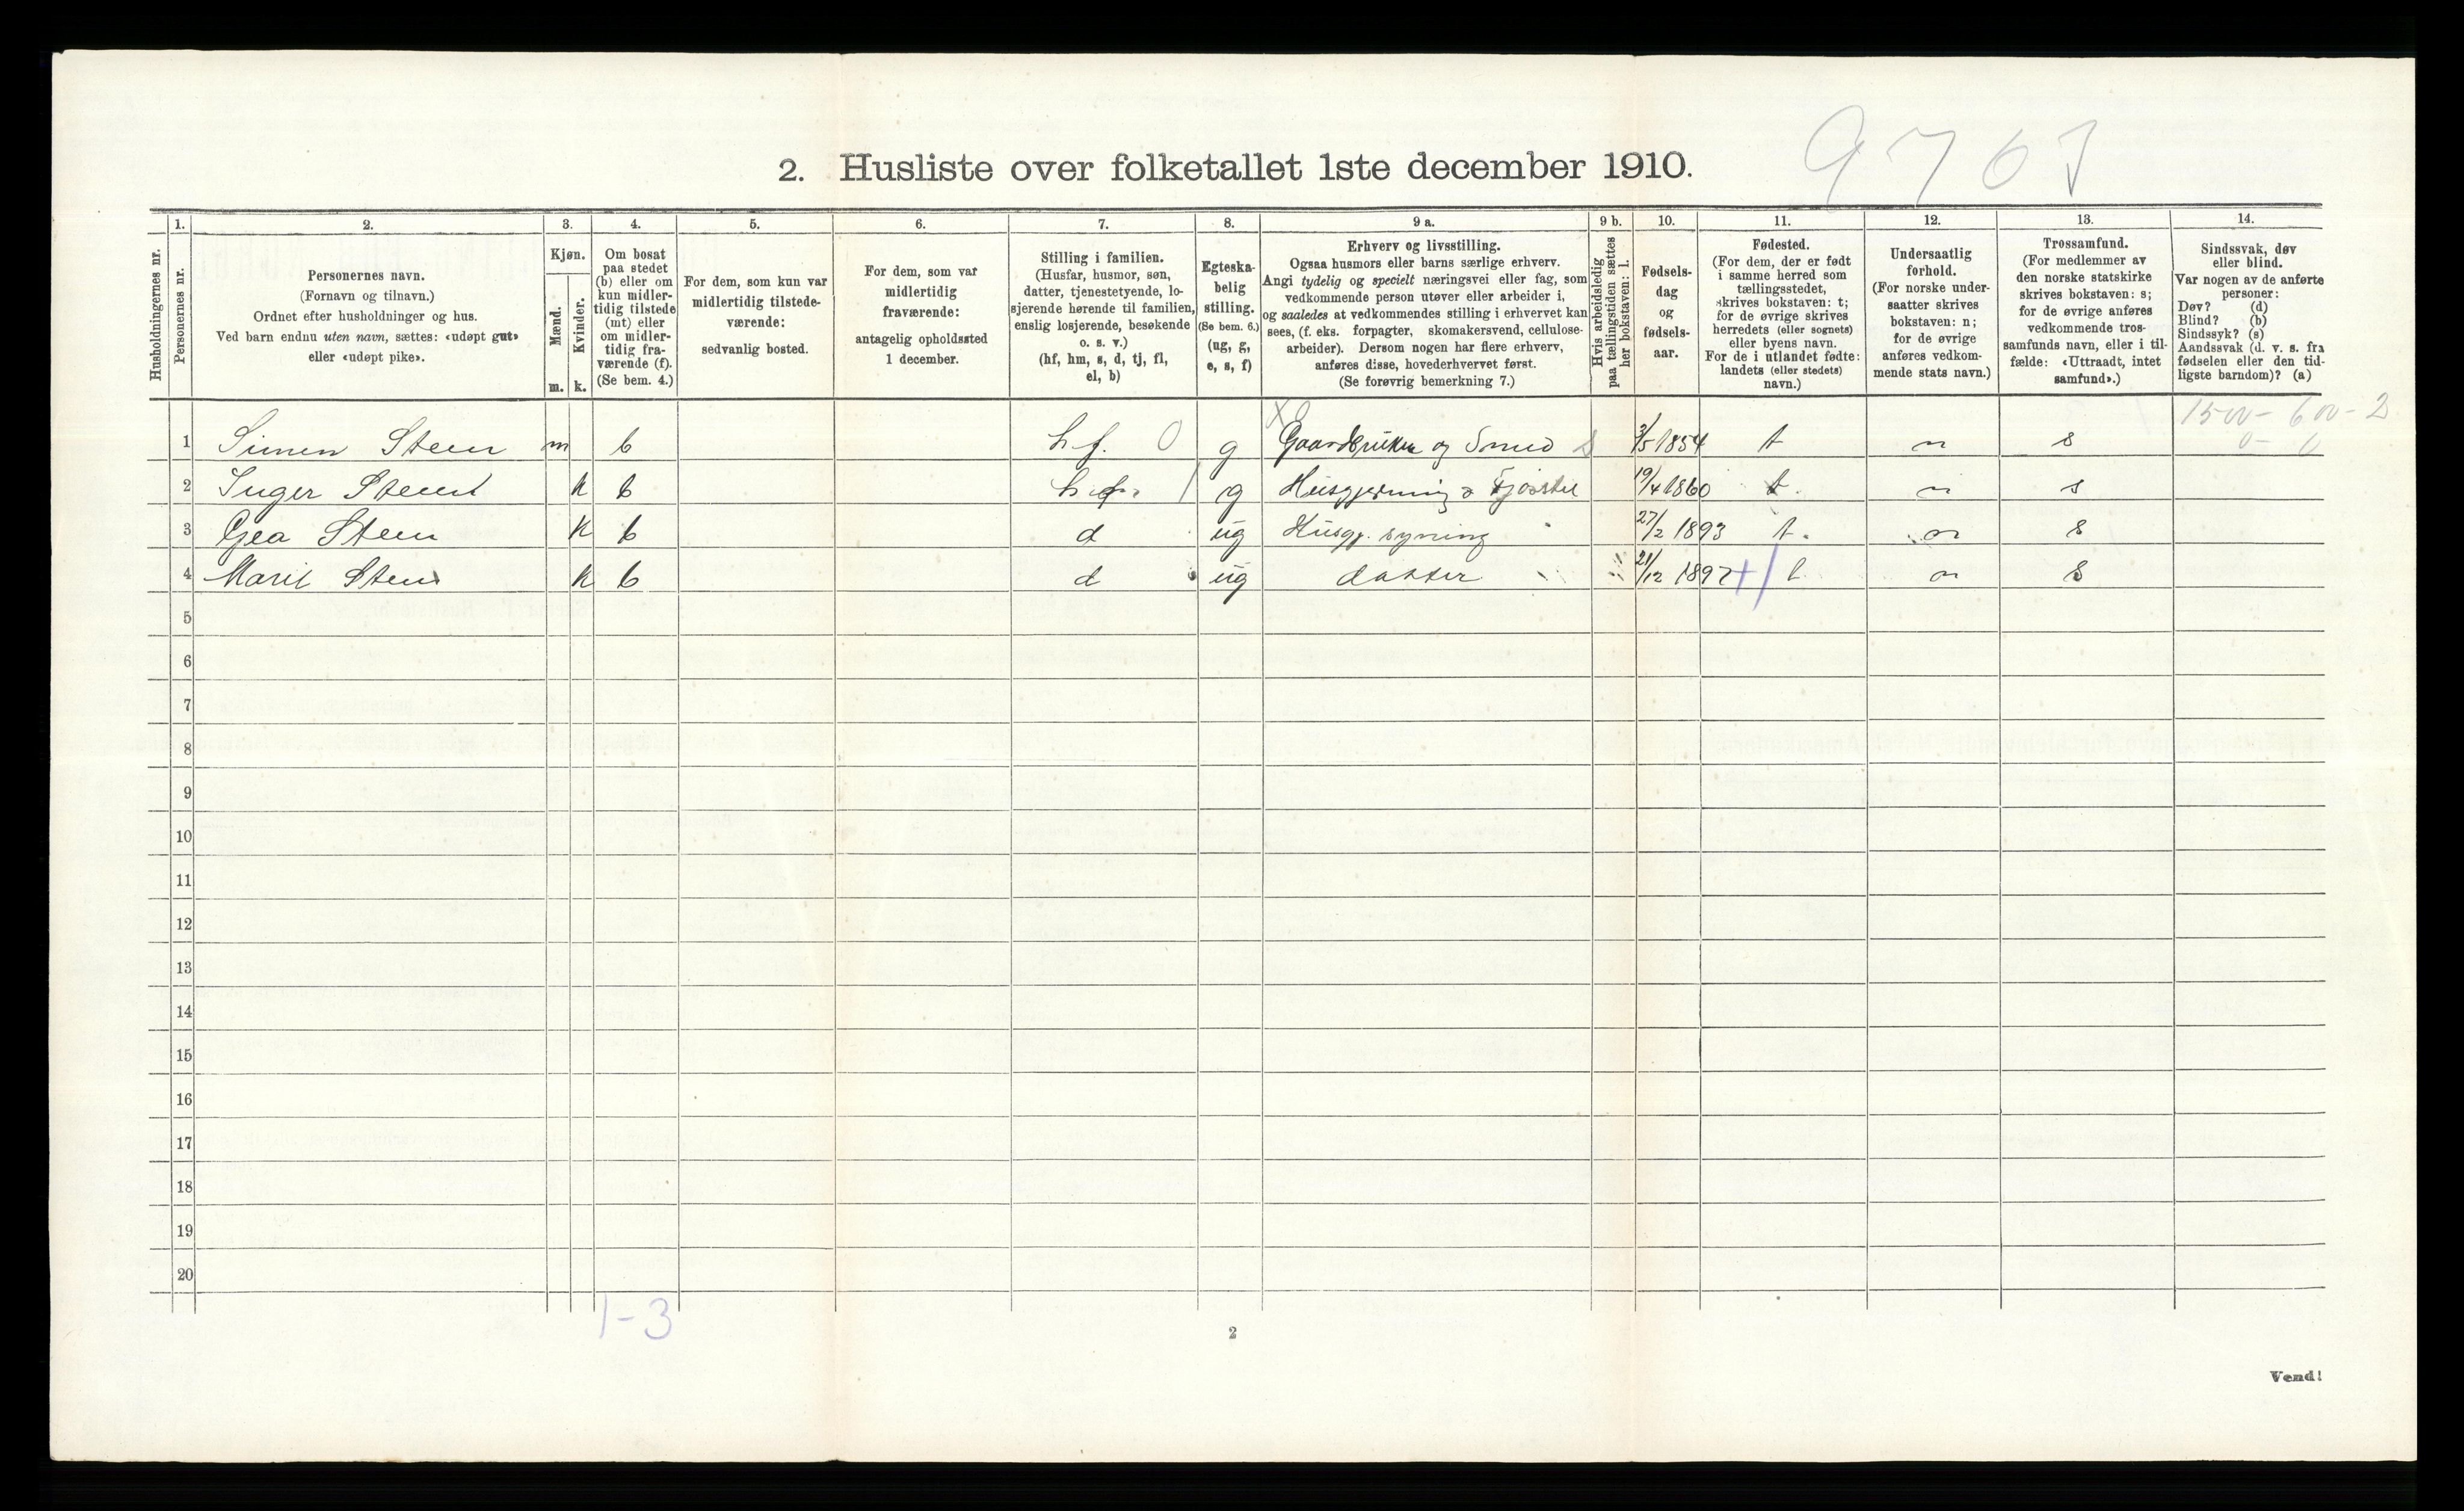 2. Husliste over folketallet 1ste december 1910.
Husholdningernes nr.
1.
Personernes nr.
2.
Personernes navn.
(Fornavn og tilnavn.)
Ordnet efter husholdninger og hus.
Ved barn endnu uten navn, sættes: «udøpt gut»
eller «udøpt pike».
3.
Kjøn.
Mænd.
m.
Kvinder.
k.
4.
Om bosat
paa stedet
(b) eller om
kun midler-
tidig tilstede
(mt) eller
om midler-
tidig fra-
værende (f).
(Se bem. 4.)
5.
For dem, som kun var
midlertidig tilstede-
værende:
sedvanlig bosted.
6.
For dem, som var
midlertidig
fraværende:
antagelig opholdssted
1 december.
7.
Stilling i familien.
(Husfar, husmor, søn,
datter, tjenestetyende, lo-
sjerende hørende til familien,
enslig losjerende, besøkende
o. s. v.)
(hf, hm, s, d, tj, fl,
el, b)
8.
Egteska-
belig
stilling.
(Se bem. 6.)
(ug, g,
e, s, f)
9 a.
Erhverv og livsstilling.
Ogsaa husmors eller barns særlige erhverv.
Angi tydelig og specielt næringsvei eller fag, som
vedkommende person utøver eller arbeider i,
og saaledes at vedkommendes stilling i erhvervet kan
sees, (f. eks. forpagter, skomakersvend, cellulose-
arbeider). Dersom nogen har flere erhverv,
anføres disse, hovederhvervet først.
(Se forøvrig bemerkning 7.)
9 b.
Hvis arbeidsledig
paa tællingstiden sættes
her bokstaven: l.
10.
Fødsels-
dag
og
fødsels-
aar.
11.
Fødested.
(For dem, der er født
i samme herred som
tællingsstedet,
skrives bokstaven: t;
for de øvrige skrives
herredets (eller sognets)
eller byens navn.
For de i utlandet fødte:
landets (eller stedets)
navn.)
12.
Undersaatlig
forhold.
(For norske under-
saatter skrives
bokstaven: n;
for de øvrige
anføres vedkom-
mende stats navn.)
13.
Trossamfund.
(For medlemmer av
den norske statskirke
skrives bokstaven: s;
for de øvrige anføres
vedkommende tros-
samfunds navn, eller i til-
fælde: «Uttraadt, intet
samfund».)
14.
Sindssvak, døv
eller blind.
Var nogen av de anførte
personer:
Døv? (d)
Blind? (b)
Sindssyk? (s)
Aandssvak (d. v. s. fra
fødselen eller den tid-
ligste barndom)? (a)
1500 - 600 - 2
0 - 0
1 Simen Steen m b hf. 0 g Gaardbruker og Smed 3/5 1854 t n s
2 Inger Steen k b 1 g Husgjerning 19/4 1860 t. n s
3 Gea Steen k b d ug Husgj. syning 27/2 1893 t. n s
4 Marit Steen k b d ug datter 21/12 1897 t n s
5
6
7
8
9
10
11
12
13
14
15
16
17
18
19
20
1-3
2
Vend!